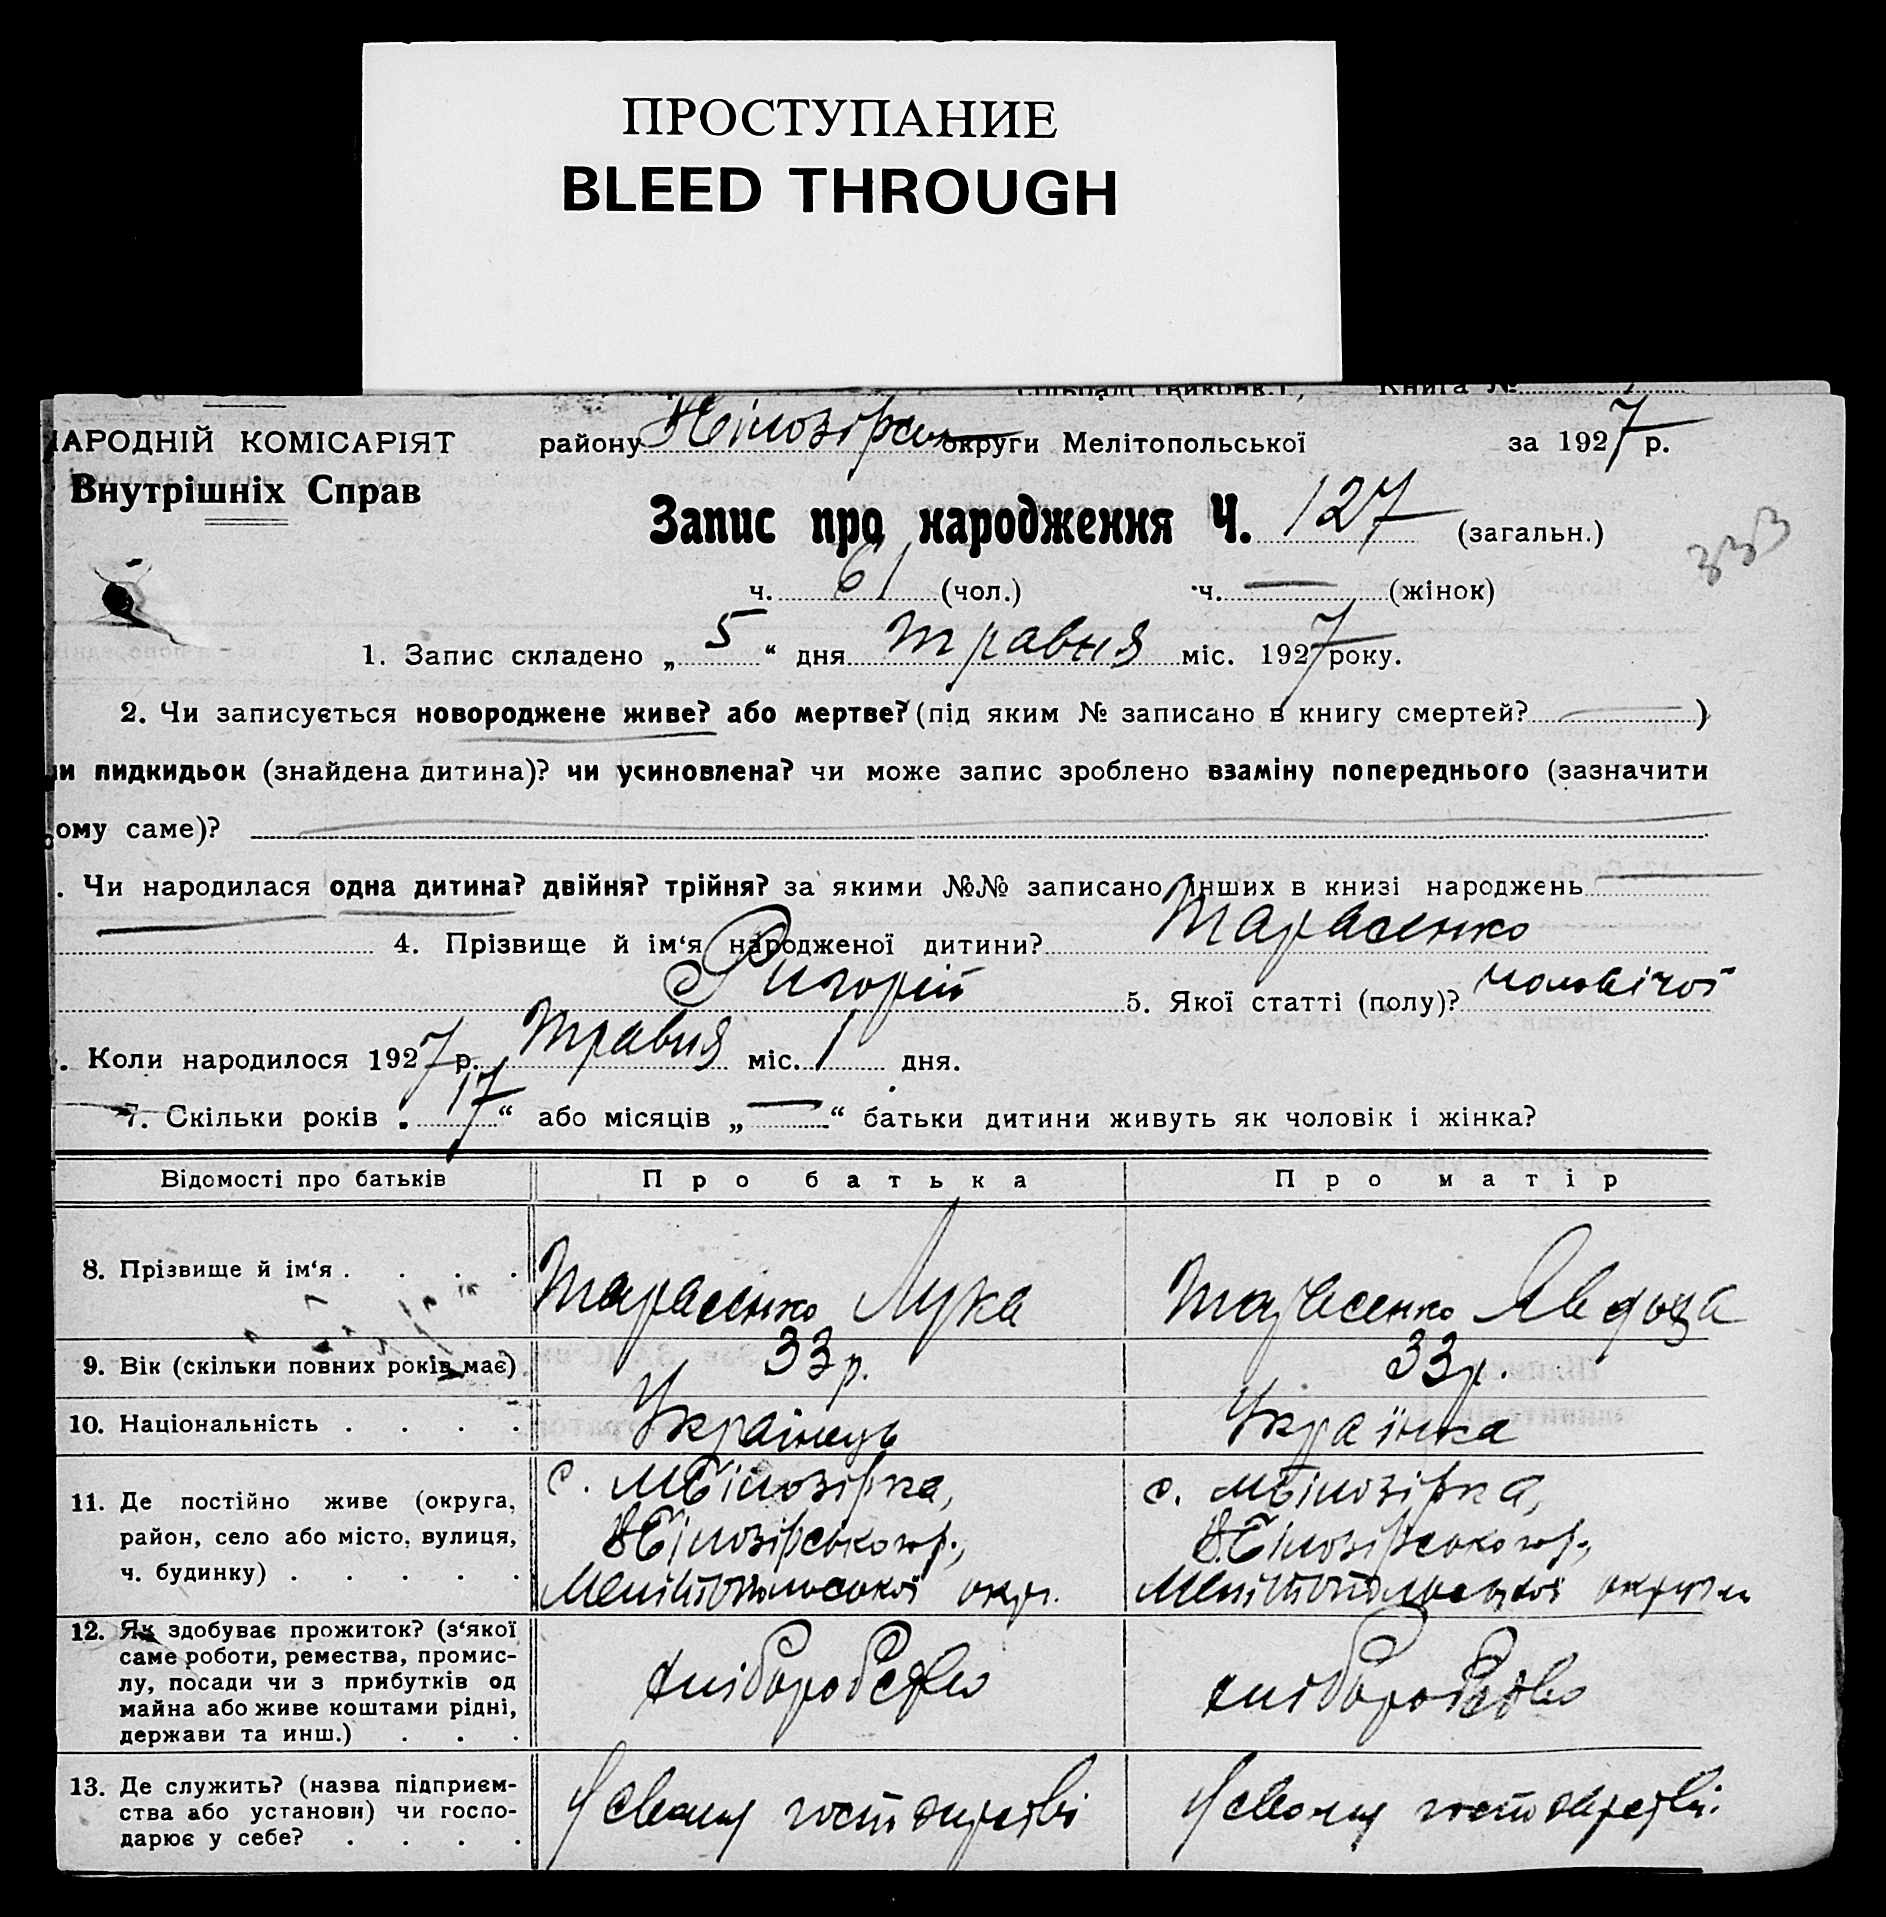 ПРОСТУПАНИЕ
BLEED THROUGH
Книга №
АРОДНІЙ КОМІСАРІЯТ району округи Мелітопольської за 1927 р.
Внутрішніх Справ
Запис про народження Ч. 127 (загальн.)
333
ч. 61 (чол.) ч. — (жінок)
1. Запис складено „5“ дня травня міс. 1927 року.
2. Чи записується новороджене живе? або мертве? (під яким № записано в книгу смертей? —)
чи пидкидьок (знайдена дитина)? чи усиновлена? чи може запис зроблено взаміну попереднього (зазначити
ому саме)? —
. Чи народилася одна дитина? двійня? трійня? за якими №№ записано інших в книзі народжень —
4. Прізвище й ім‘я народженої дитини? Тарасенко
Григорій 5. Якої статті (полу)? чоловічої
. Коли народилося 1927 р. травня міс. 1 дня.
7. Скільки років „17“ або місяців „—“ батьки дитини живуть як чоловік і жінка?
Відомості про батьків Про батька Про матір
8. Прізвище й ім‘я . . . . Тарасенко Лука Тарасенко Явдоха
9. Вік (скільки повних років має) 33 р. 33 р.
10. Національність . . . . Українець Українка
11. Де постійно живе (округа, с. МБілозірка, с. МБілозірка,
район, село або місто, вулиця, ВБілозірського р., В.Білозірського р.,
ч. будинку) . . . . . Мелітопольської окр. Мелітопольської округи
12. Як здобуває прожиток? (з‘якої
саме роботи, ремества, промис-
лу, посади чи з прибутків од хліборобство хліборобство
майна або живе коштами рідні,
держави та инш.) . . .
13. Де служить? (назва підприєм-
ства або установи) чи госпо- У своему господарстві У своему господарстві.
дарює у себе? . . . .